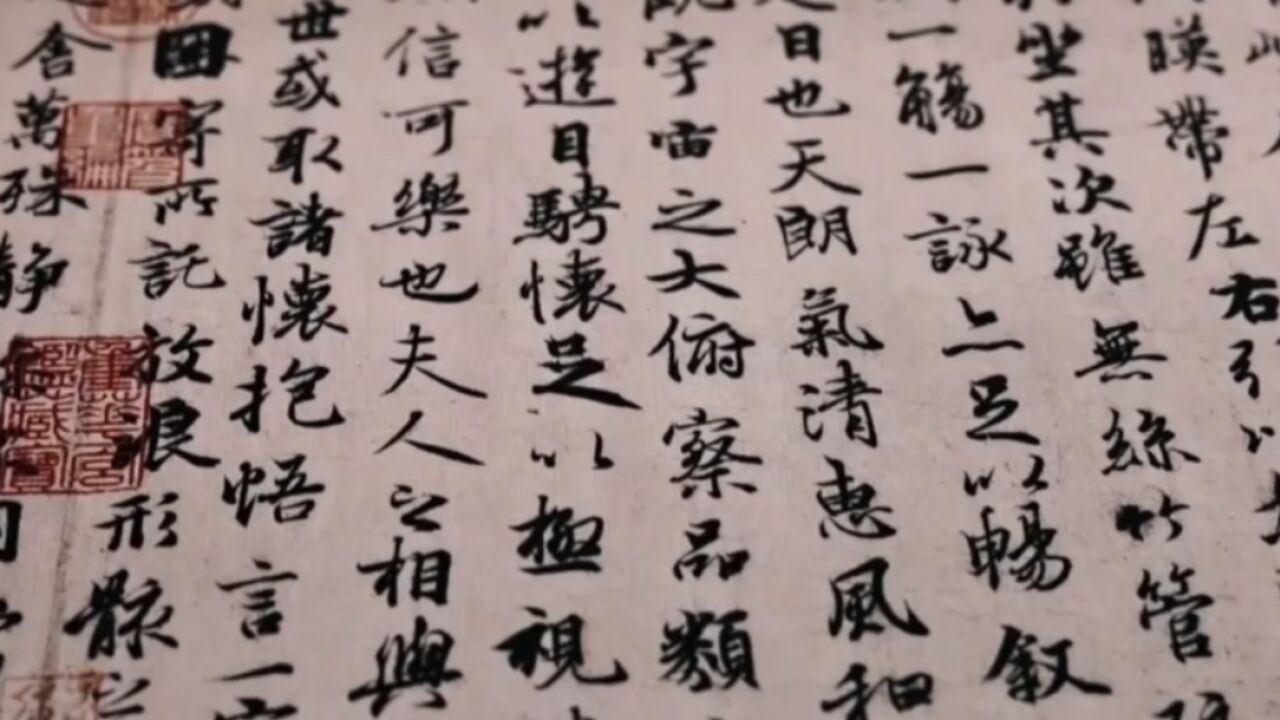 暎帶左右引以
坐其次雖無絲竹管
一觴一詠亦足以暢叙
日也天朗氣清惠風和
宇宙之大俯察品類
以遊目騁懷足以極視
信可樂也夫人之相與
世或取諸懷抱悟言一
因寄所託放浪形骸之
舍萬殊静